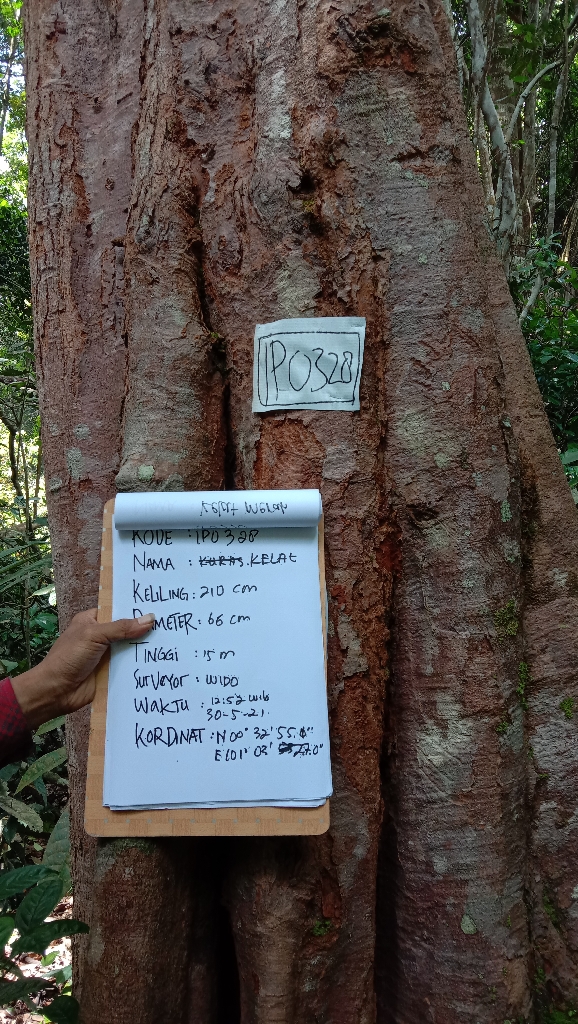 IPO320
KODE : IPO 320
NAMA : KELAT
KELILING : 210 cm
DIAMETER : 66 cm
TINGGI : 15 m
SURVEYOR : WIDO
WAKTU : 12:52 WIB
30-5-21
KORDINAT : N 00° 32' 55.
E 101° 03'